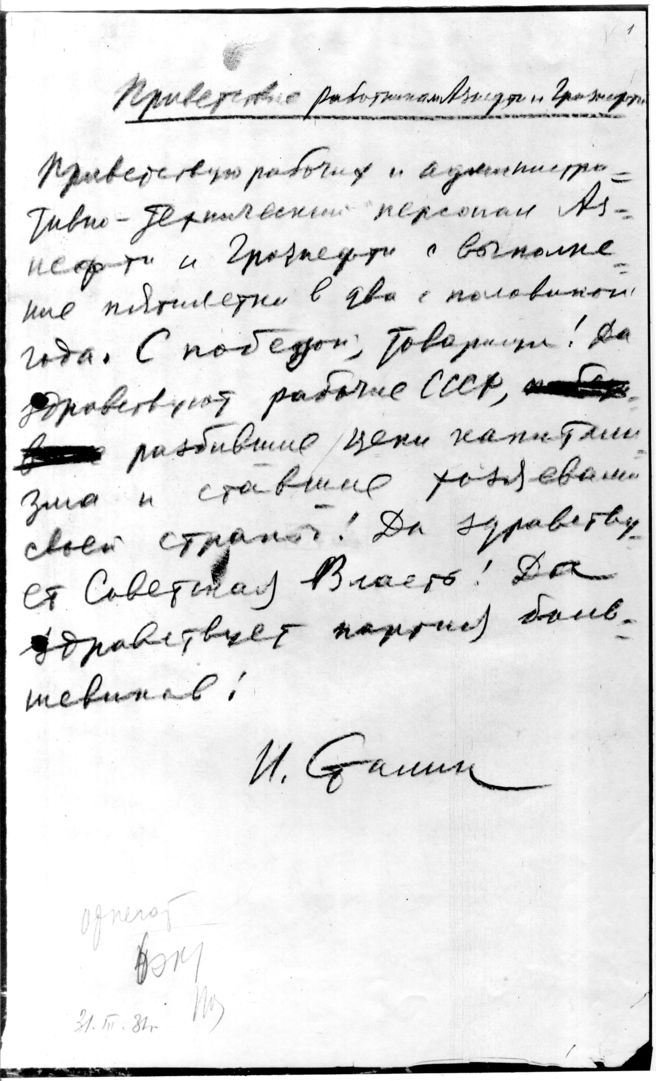 1
Приветствие работникам Азнефти и Грознефти
Приветствую рабочих и администра=
тивно-технический персонал Аз=
нефти и Грознефти с выполне=
ние пятилетки в два с половиной
года. С победой, товарищи! Да
здравствуют рабочие СССР,
разбившие цепи капитали=
зма и ставшие хозяевами
своей страны! Да здравству=
ет Советская Власть! Да
здравствует партия боль=
шевиков!
И. Сталин
31. III. 31г.